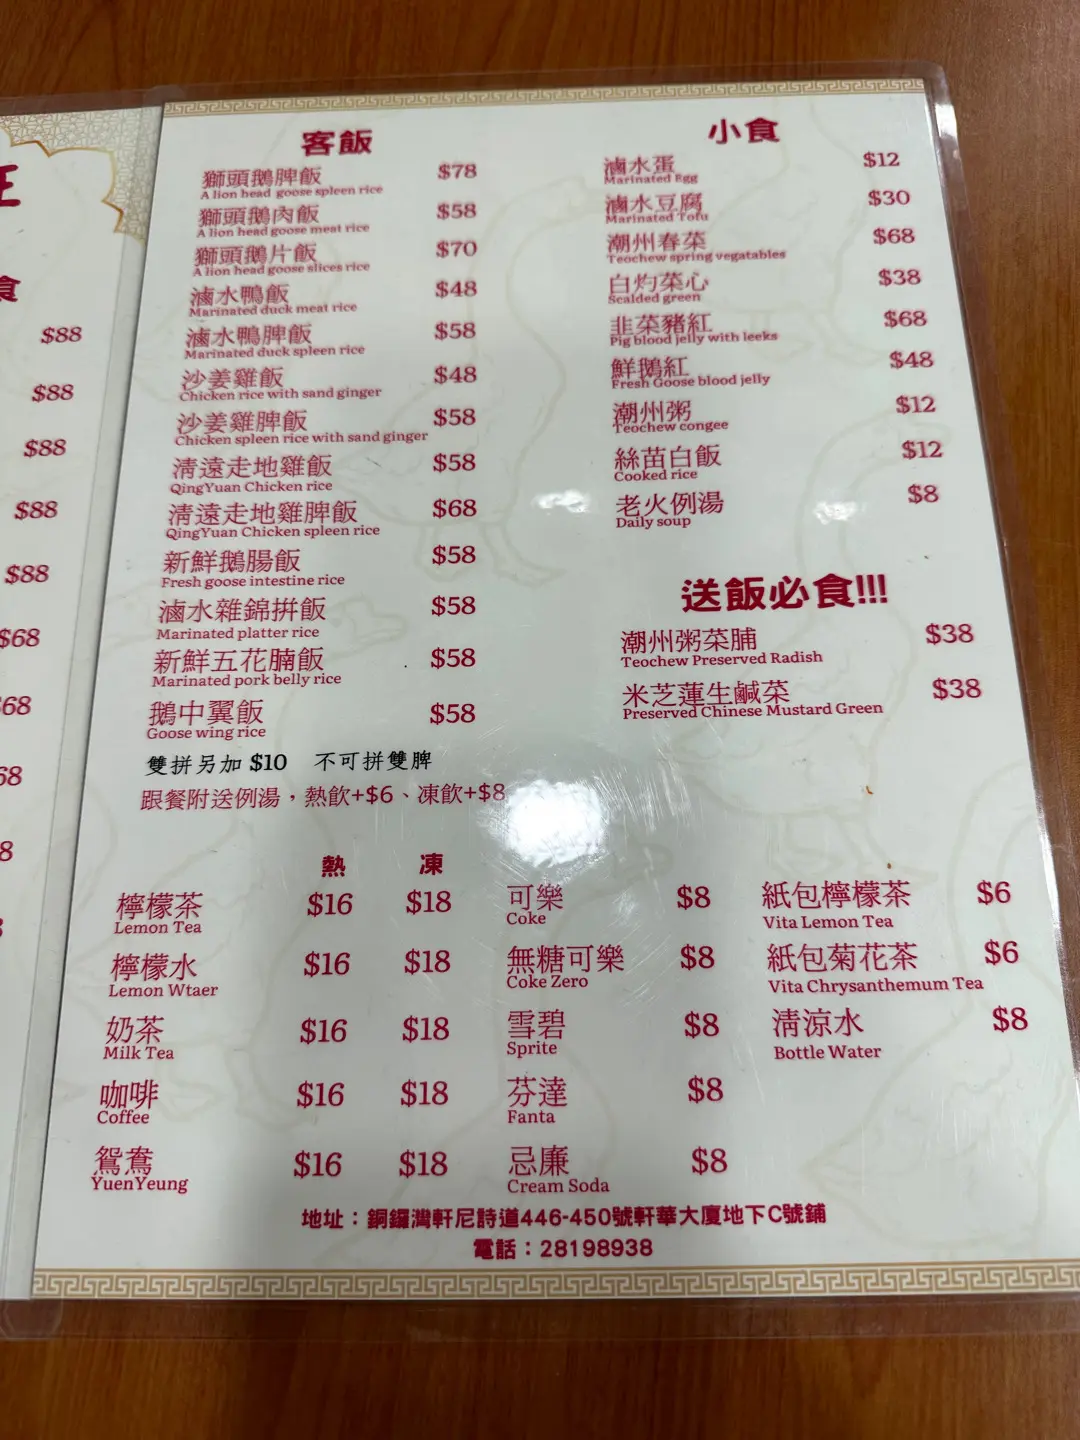 旺
食
$88
$88
$88
$88
$88
$68
$68
客飯
獅頭鵝脾飯 $78
A lion head goose spleen rice
獅頭鵝肉飯 $58
A lion head goose meat rice
獅頭鵝片飯 $70
A lion head goose slices rice
滷水鴨飯 $48
Marinated duck meat rice
滷水鴨脾飯 $58
Marinated duck spleen rice
沙姜雞飯 $48
Chicken rice with sand ginger
沙姜雞脾飯 $58
Chicken spleen rice with sand ginger
清遠走地雞飯 $58
QingYuan Chicken rice
清遠走地雞脾飯 $68
QingYuan Chicken spleen rice
新鮮鵝腸飯 $58
Fresh goose intestine rice
滷水雜錦拼飯 $58
Marinated platter rice
新鮮五花腩飯 $58
Marinated pork belly rice
鵝中翼飯 $58
Goose wing rice
雙拼另加 $10 不可拼雙脾
跟餐附送例湯，熱飲+$6、凍飲+$8
小食
滷水蛋 $12
Marinated Egg
滷水豆腐 $30
Marinated Tofu
潮州春菜 $68
Teochew spring vegatables
白灼菜心 $38
Scalded green
韭菜豬紅 $68
Pig blood jelly with leeks
鮮鵝紅 $48
Fresh Goose blood jelly
潮州粥 $12
Teochew congee
絲苗白飯 $12
Cooked rice
老火例湯 $8
Daily soup
送飯必食!!!
潮州粥菜脯 $38
Teochew Preserved Radish
米芝蓮生鹹菜 $38
Preserved Chinese Mustard Green
熱 凍
檸檬茶 $16 $18
Lemon Tea
檸檬水 $16 $18
Lemon Wtaer
奶茶 $16 $18
Milk Tea
咖啡 $16 $18
Coffee
鴛鴦 $16 $18
YuenYeung
可樂 $8
Coke
無糖可樂 $8
Coke Zero
雪碧 $8
Sprite
芬達 $8
Fanta
忌廉 $8
Cream Soda
紙包檸檬茶 $6
Vita Lemon Tea
紙包菊花茶 $6
Vita Chrysanthemum Tea
清涼水 $8
Bottle Water
地址：銅鑼灣軒尼詩道446-450號軒華大廈地下C號鋪
電話：28198938